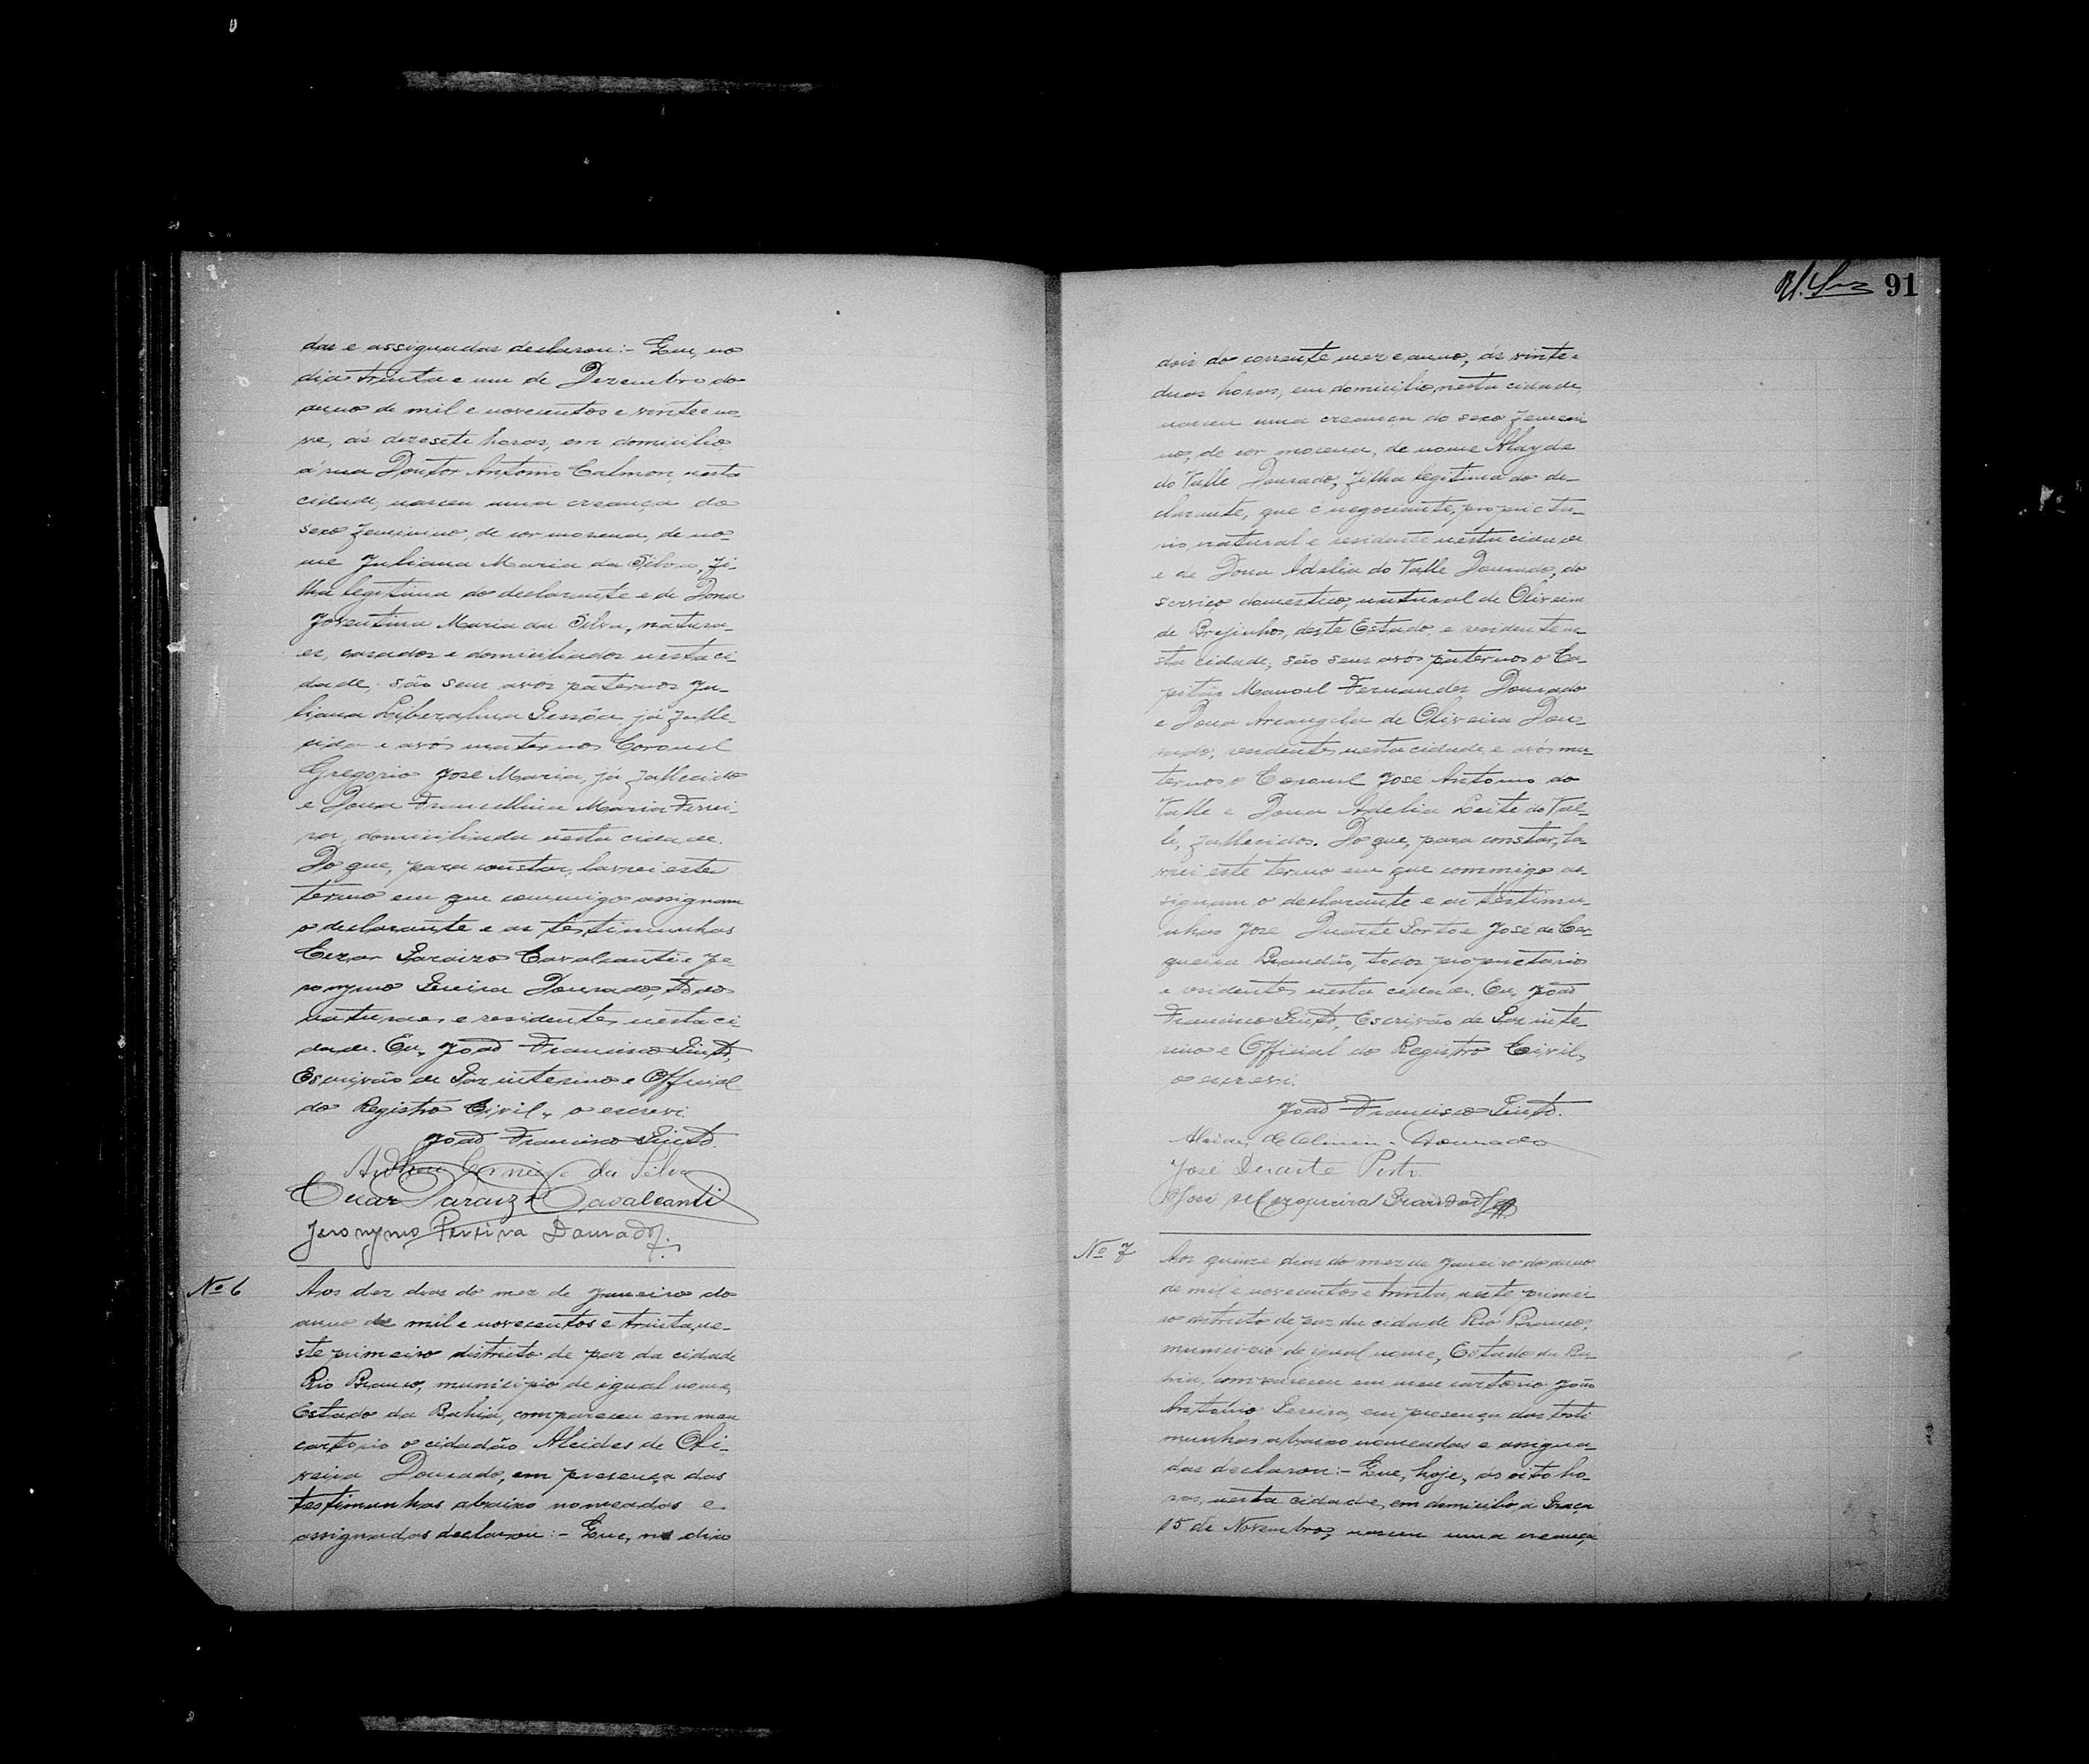 das e assignadas declarou:- Que, no
dia trinta e um de Dezembro do
anno de mil e novecentos e vinte e no-
ve, ás dezesete horas, em domicilio,
á rua Doutor Antonio Calmon, nesta
cidade, nasceu uma creança do
sexo feminino, de cor morena, de no-
me Juliana Maria da Silva, fi-
lha legitima do declarante e de Dona
Joventina Maria da Silva, natura-
es, casados e domiciliados nesta ci-
dade; são seus avós paternos Ju-
liana Liberalina Pessôa, já falle-
cida e avós maternos Coronel
Gregorio José Maria, já fallecido
e Dona Francellina Maria Ferrei-
ra, domiciliada nesta cidade.
Do que, para constar, lavrei este
termo em que commigo assignam
o declarante e as testimunhas
Cezar Paraizo Cavalcanti e Je-
ronymo Pereira Dourado, todos
naturaes e residentes nesta ci
dade. Eu, João Francisco Pinto,
Escrivão de Paz interino e Official
do Registro Civil, o escrevi.
João Francisco Pinto.
da Silva
Cezar Paraizo Cavalcanti
Jeronymo Pereira Dourado
Nº 6
Aos dez dias do mez de Janeiro do
anno de mil e novecentos e trinta, ne-
ste primeiro districto de paz da cidade
Rio Branco, municipio de egual nome,
Estado da Bahia, compareceu em meu
cartorio o cidadão Alcides de Oli-
veira Dourado, em presença das
testimunhas abaixo nomeadas e
assignadas declarou:- Que, no dia
91
dois do corrente mez e anno, ás vinte e
duas horas, em domicilio, nesta cidade,
nasceu uma creança do sexo femeni
no, de cor morena, de nome Alayde
do Valle Dourado, filha legitima do de-
clarante, que é negociante, proprieta-
rio, natural e residente nesta cidade
e de Dona Adelia do Valle Dourado, do
serviço domestico, natural de Oliveira
de Brejinhos, deste Estado, e residente ne-
sta cidade; são seus avós paternos o Ca-
pitão Manoel Fernandes Dourado
e Dona Archangela de Oliveira Dou-
rado, residentes nesta cidade e avós ma-
ternos o Coronel José Antonio do
Valle e Dona Adelia Leite do Val-
le, fallecidos. Do que, para constar, la-
vrei este termo em que commigo as-
signam o declarante e as testimu-
nhas José Duarte Porto e José de Cer-
queira Brandão, todos proprietarios
e residentes nesta cidade. Eu, João
Francisco Pinto, Escrivão de Paz inte-
rino e Official do Registro Civil,
o escrevi.
João Francisco Pinto.
Alcides de Oliveira Dourado
José Duarte Porto
José de Cerqueira Brandão
Nº 7
Aos quinze dias do mez de Janeiro do anno
de mil e novecentos e trinta, neste primei-
ro districto de paz da cidade Rio Branco,
municipio de igual nome, Estado da Ba-
hia, compareceu em meu cartorio João
Antonio Pereira, em presença das testi
munhas abaixo nomeadas e assigna-
das declarou:- Que, hoje, ás oito ho-
ras, nesta cidade, em domicilio, á Praça
15 de Novembro, nasceu uma creança